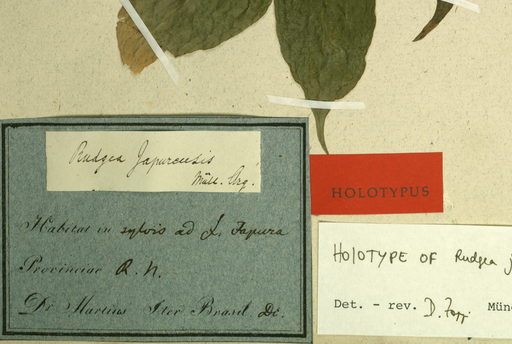 Rudgea Japurensis
Müll. Arg.
Habitat in sylvis ad fl. Japura
Provinciae R. N.
Dr. Martius Iter Brasil. Dc.
HOLOTYPUS
HOLOTYPE OF Rudgea j
Det. - rev. D. Zappi Mün